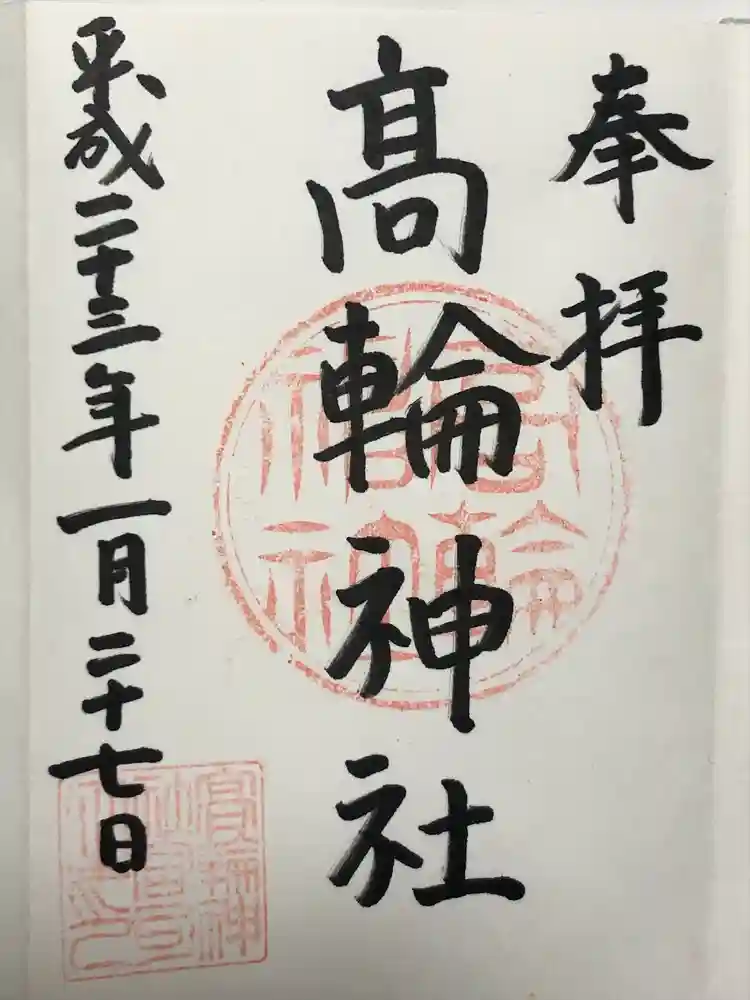 奉拝
髙輪神社
平成二十三年一月二十七日
髙輪神社